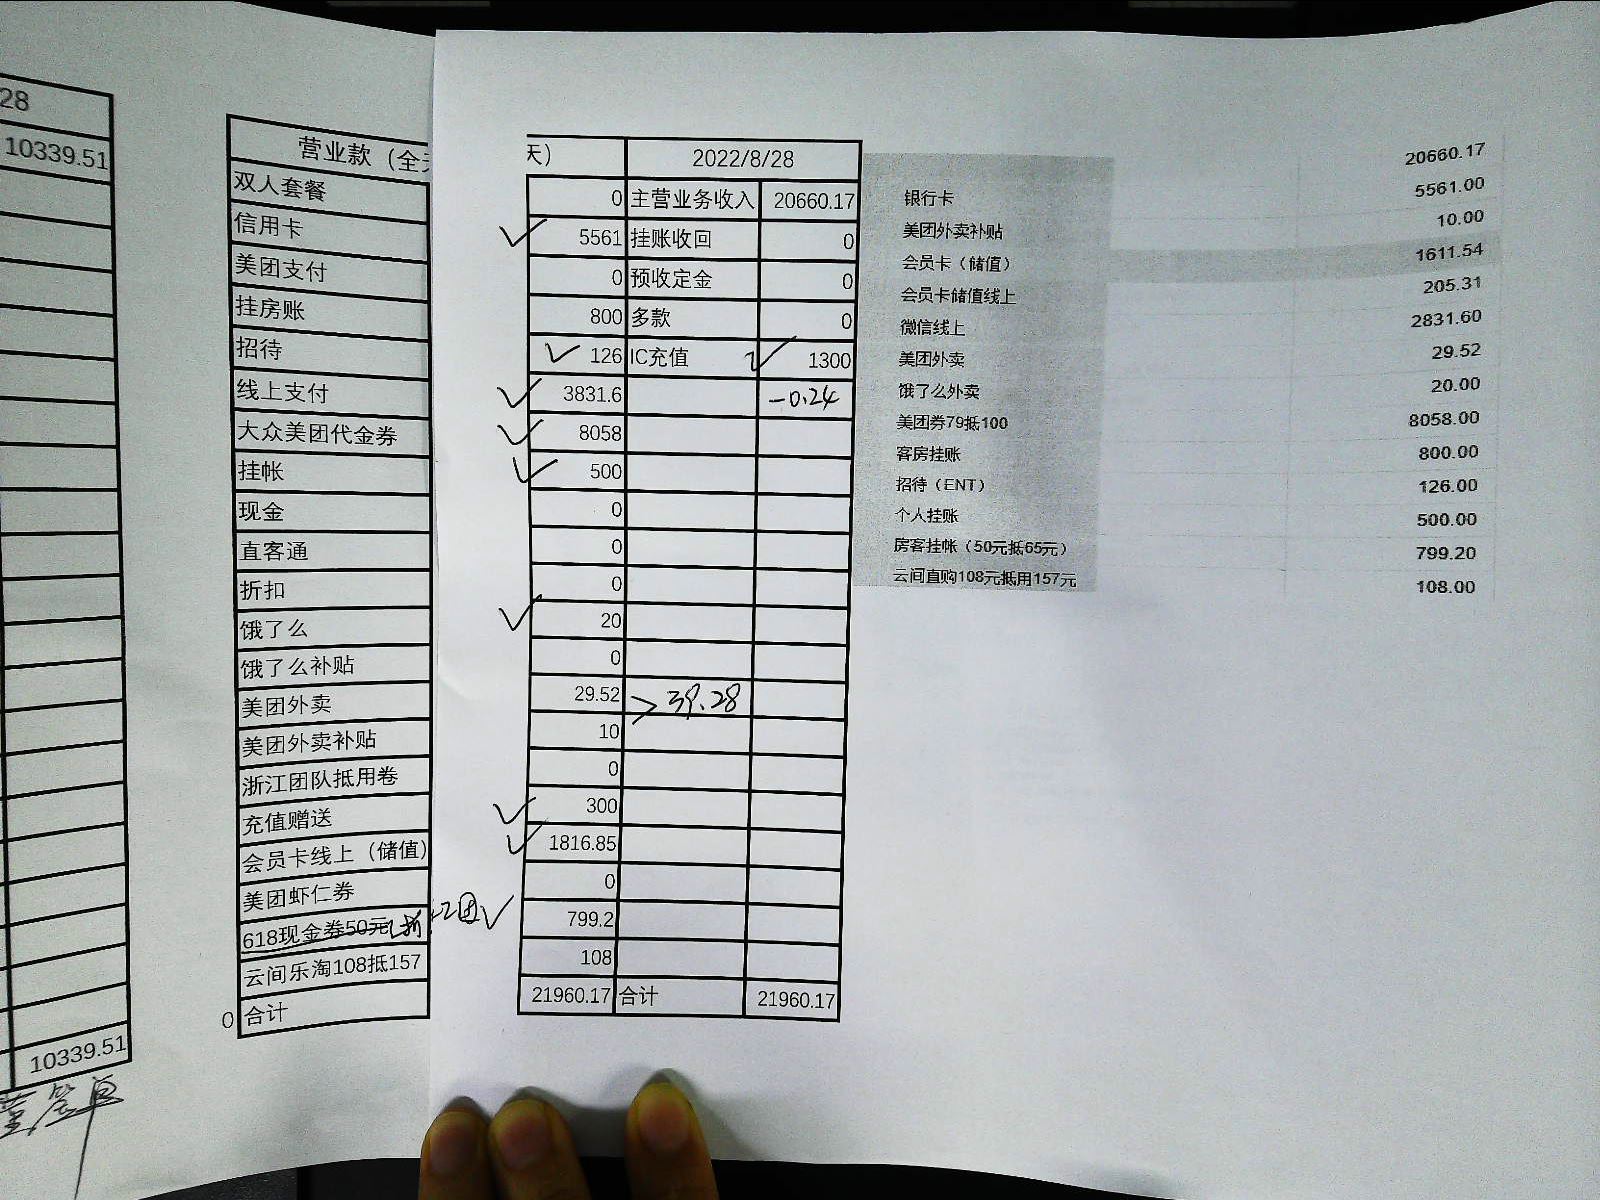 28
10339.51
10339.51
营业款（全天） 2022/8/28
双人套餐 0 主营业务收入 20660.17
信用卡 5561 挂账收回 0
美团支付 0 预收定金 0
挂房账 800 多款 0
招待 126 IC充值 1300
线上支付 3831.6 -0.24
大众美团代金券 8058
挂帐 500
现金 0
直客通 0
折扣 0
饿了么 20
饿了么补贴 0
美团外卖 29.52 > 39.28
美团外卖补贴 10
浙江团队抵用卷 0
充值赠送 300
会员卡线上（储值） 1816.85
美团虾仁券 0
618现金券50元 799.2
云间乐淘108抵157 108
0 合计 21960.17 合计 21960.17
20660.17
银行卡 5561.00
美团外卖补贴 10.00
会员卡（储值） 1611.54
会员卡储值线上 205.31
微信线上 2831.60
美团外卖 29.52
饿了么外卖 20.00
美团券79抵100 8058.00
客房挂账 800.00
招待（ENT） 126.00
个人挂账 500.00
房客挂帐（50元抵65元） 799.20
云间直购108元抵用157元 108.00